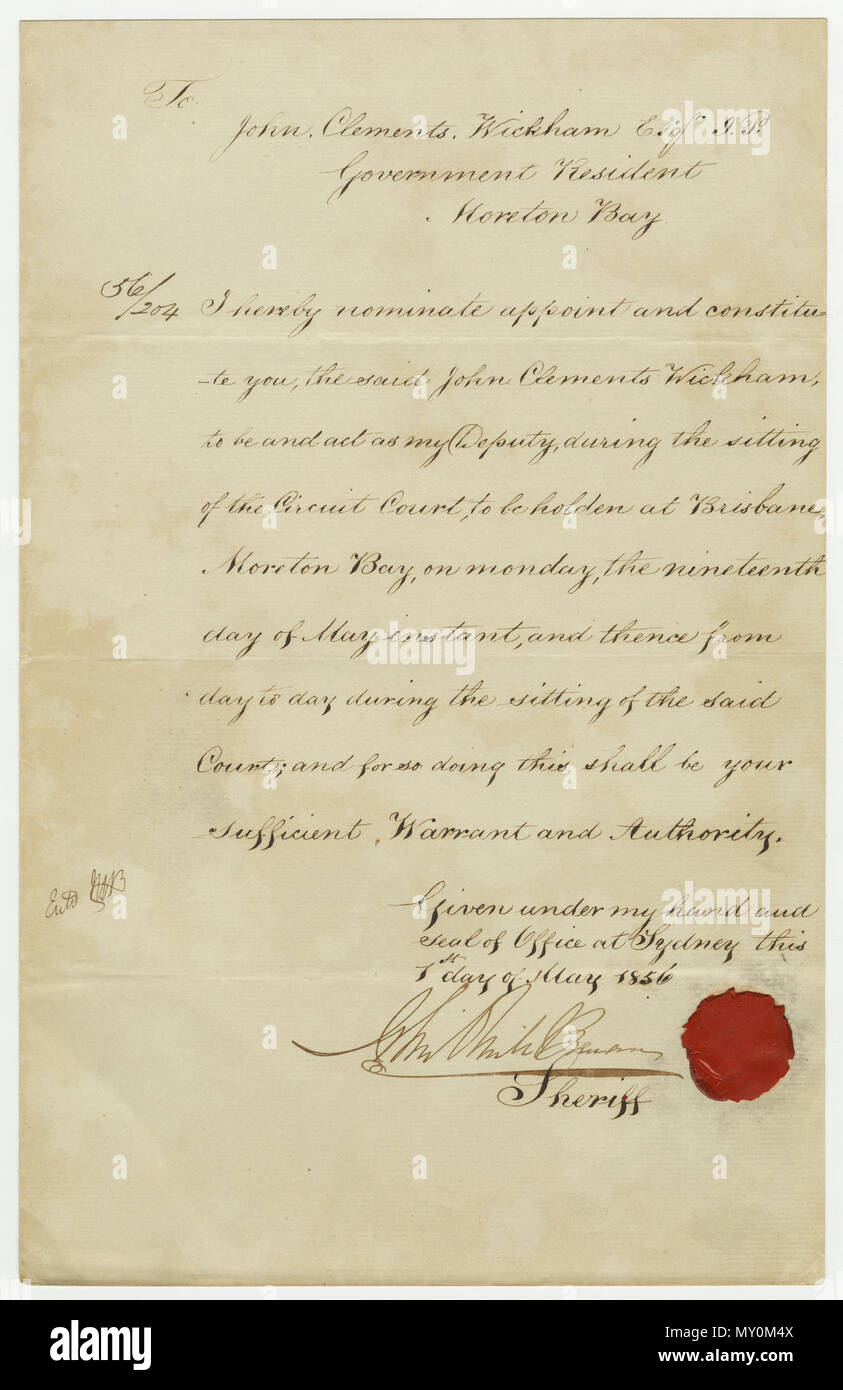 To
John. Clements. Wickham Esqr J.P.
Government Resident
Moreton Bay
56/204
I hereby nominate appoint and constitu=
-te you, the said John Clements Wickham,
to be and act as my Deputy, during the sitting
of the Circuit Court, to be holden at Brisbane,
Moreton Bay, on monday, the nineteenth
day of May instant, and thence from
day to day during the sitting of the said
Court; and for so doing this shall be your
sufficient Warrant and Authority.
Entd
Given under my hand and
seal of Office at Sydney this
1st day of May 1856
Sheriff
alamy
Image ID: MY0M4X
www.alamy.com